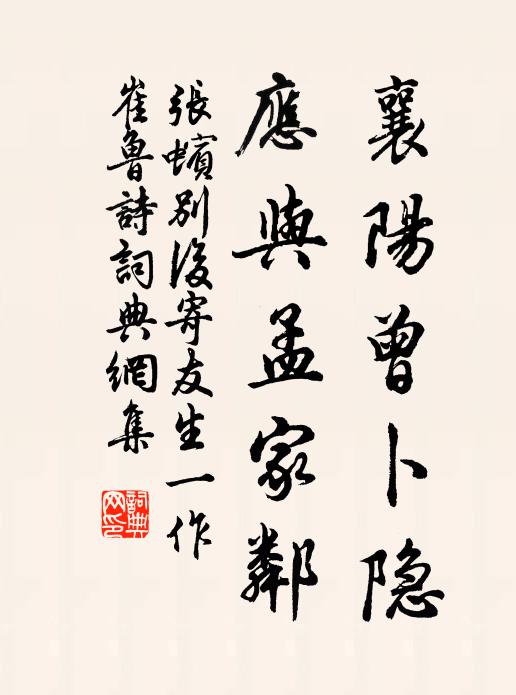 襄陽曾卜隐
應與孟家鄰
張蠙别後寄友生一作
崔魯詩詞典網集
詞典
网印